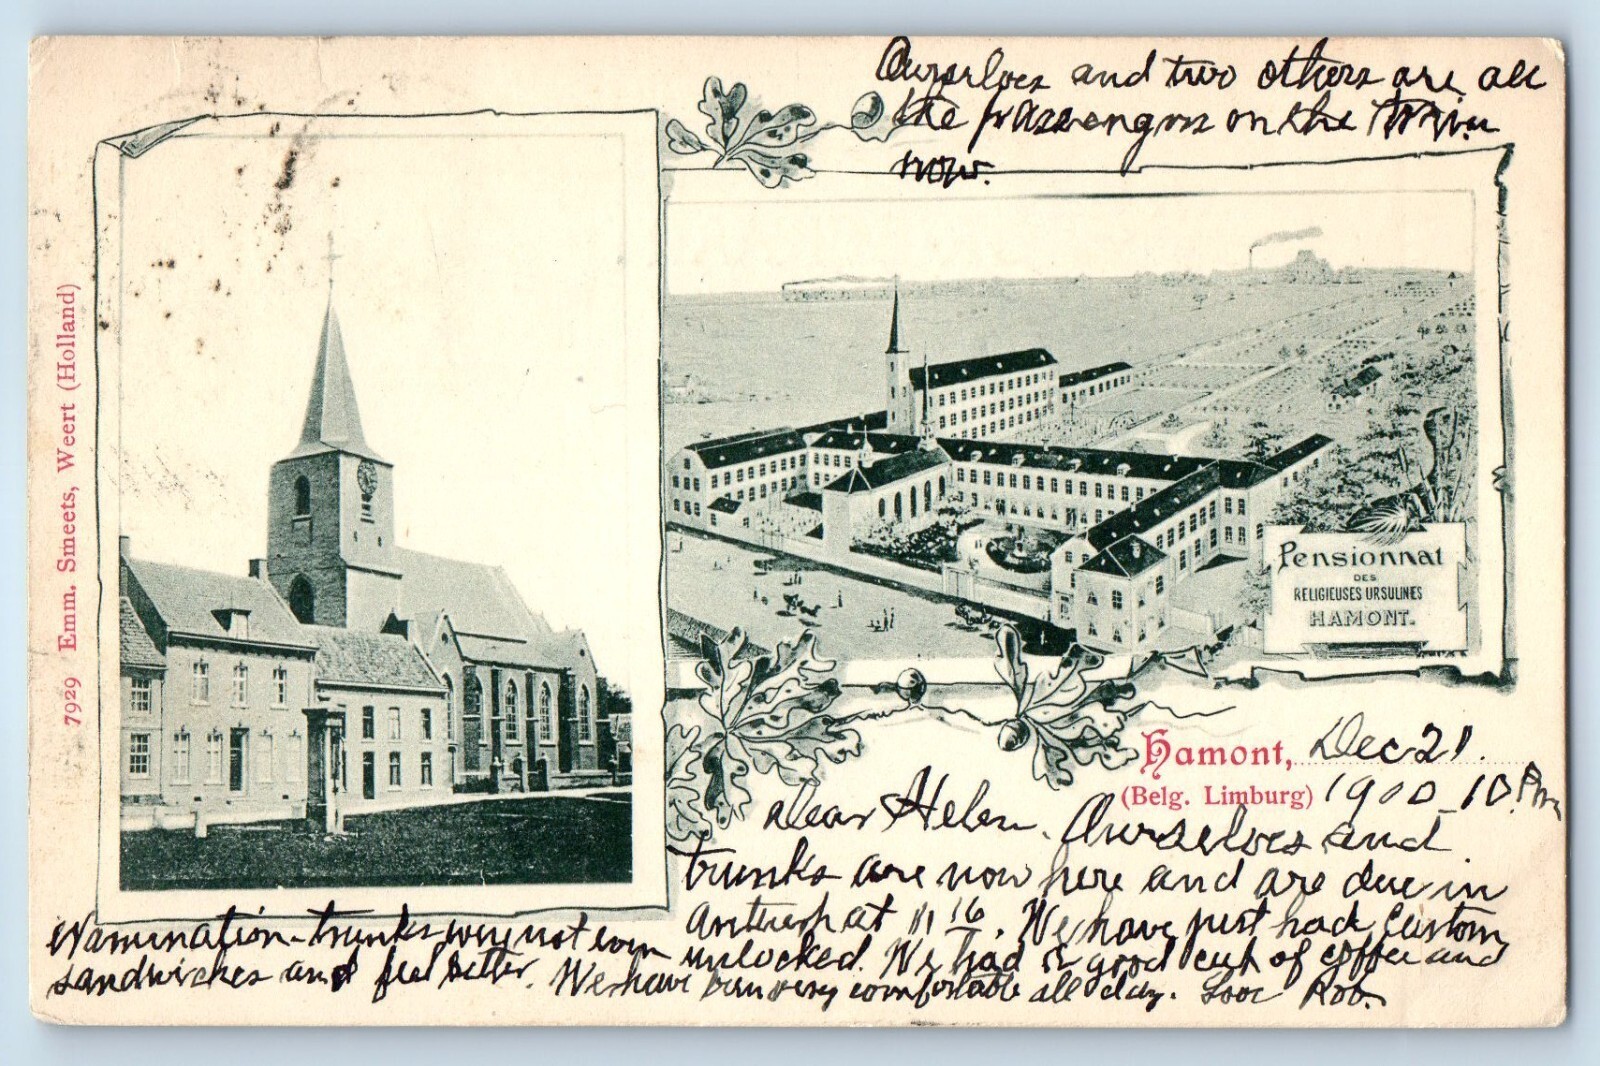 Ourselves and two others are all
the passengers on the train
now.
7929 Emm. Smeets, Weert (Holland)
Pensionnat
DES
RELIGIEUSES URSULINES
HAMONT.
Hamont, Dec 21.
(Belg. Limburg) 1900_10 Pm
Dear Helen. Ourselves and
trunks are now here and are due in
Antwerp at 11 16. We have just had Custom
examination - trunks were not even unlocked. We had a good cup of coffee and
sandwiches and feel better. We have been very comfortable all day. Love Rob.